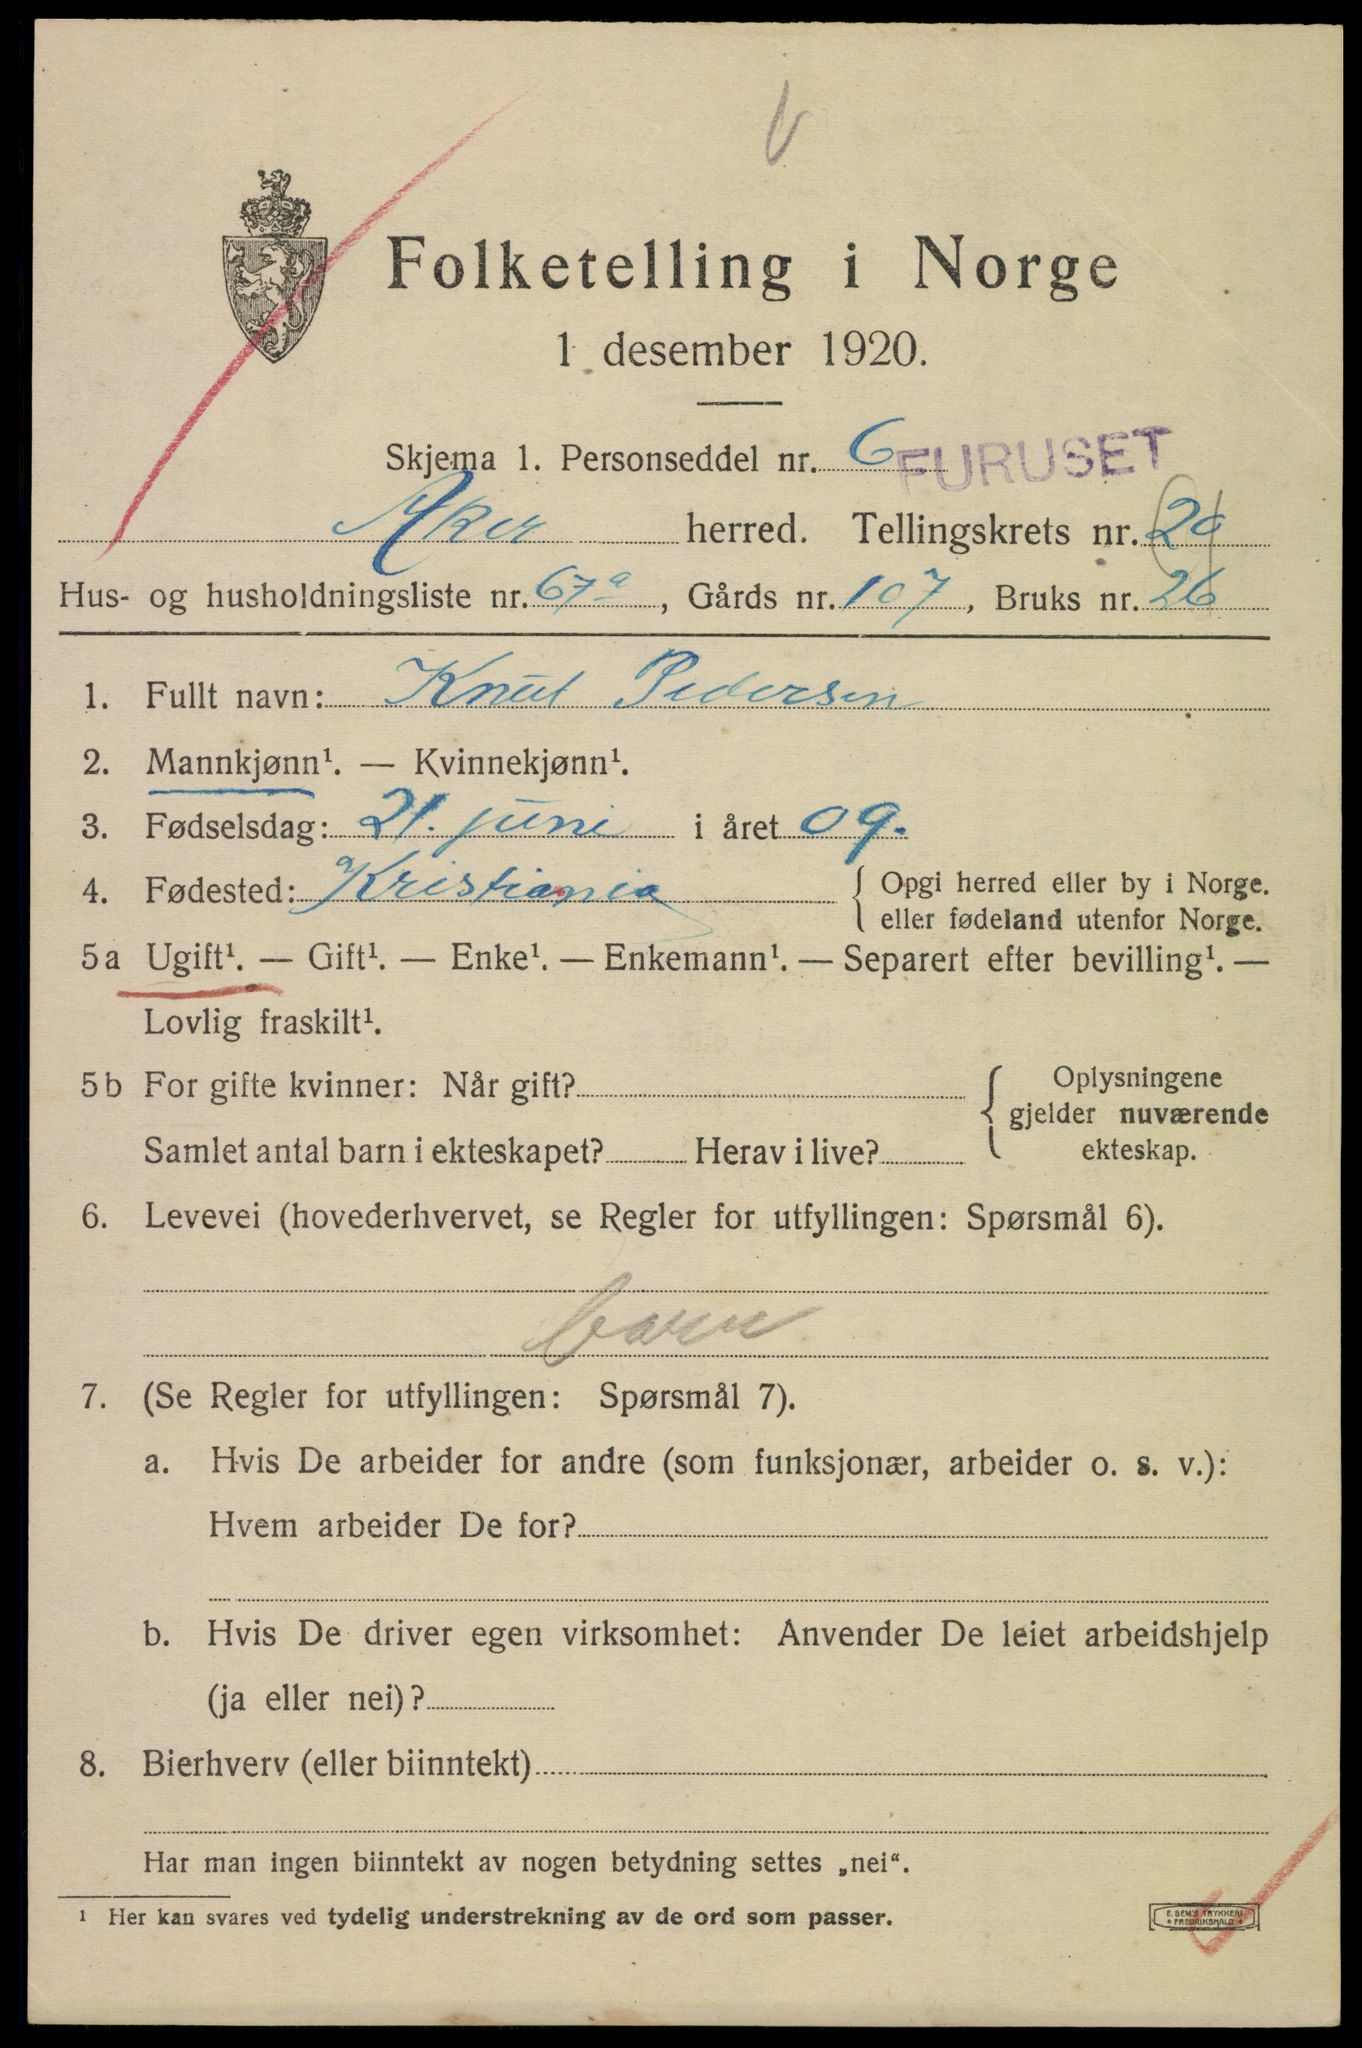 V
Folketelling i Norge
1 desember 1920.
Skjema 1. Personseddel nr. 6 FURUSET
Aker herred. Tellingskrets nr. 20
Hus- og husholdningsliste nr. 67a, Gårds nr. 107, Bruks nr. 26
1. Fullt navn: Knut Pedersen
2. Mannkjønn¹. — Kvinnekjønn¹.
3. Fødselsdag: 21. juni i året 09.
4. Fødested: Kristiania { Opgi herred eller by i Norge.
eller fødeland utenfor Norge.
5a Ugift¹. — Gift¹. — Enke¹. — Enkemann¹. — Separert efter bevilling¹. —
Lovlig fraskilt¹.
5b For gifte kvinner: Når gift? { Oplysningene
gjelder nuværende
Samlet antal barn i ekteskapet? Herav i live? ekteskap.
6. Levevei (hovederhvervet, se Regler for utfyllingen: Spørsmål 6).
barn
7. (Se Regler for utfyllingen: Spørsmål 7).
a. Hvis De arbeider for andre (som funksjonær, arbeider o. s. v.):
Hvem arbeider De for?
b. Hvis De driver egen virksomhet: Anvender De leiet arbeidshjelp
(ja eller nei)?
8. Bierhverv (eller biinntekt)
Har man ingen biinntekt av nogen betydning settes „nei“.
¹ Her kan svares ved tydelig understrekning av de ord som passer.
E. SEM'S TRYKKERI
FREDRIKSHALD